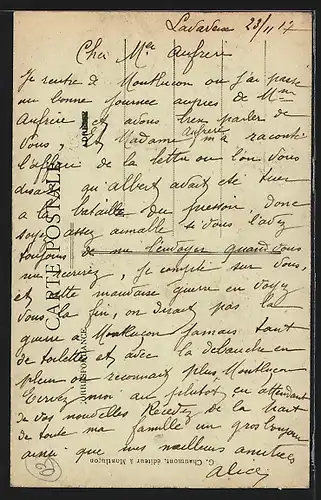 Lavaveix 23/11 17
Cher Mr Aufrere
Je rentre de Montlucon ou j'ai passé
une bonne journee aupres de Mme
Aufrere et avons bien parler de
vous, Et Madame Aufrere m'a raconté
l'affaire de la lettre ou l'on vous
disait qu'albert avait eté tuer
a la bataille du pressoir, donc
soyez assez aimable si vous l'avez
toujours de me l'envoyer quand vous
me ecrirez, je compte sur vous,
et cette maudaise guerre en voyez
vous la fin, on dirait pas la
guerre a Montlucon jamais tant
de toilettes et avec la debauche en
plein on reconnait plus Montlucon
Ecrivez moi au plutôt en attendant
de vos nouvelles Recevez de la part
de toute ma famille un gros bonjour
ainsi que mes meilleurs amitiées
Alice
CARTE POSTALE
CORRESPONDANCE
G. Chaumont, éditeur à Montluçon